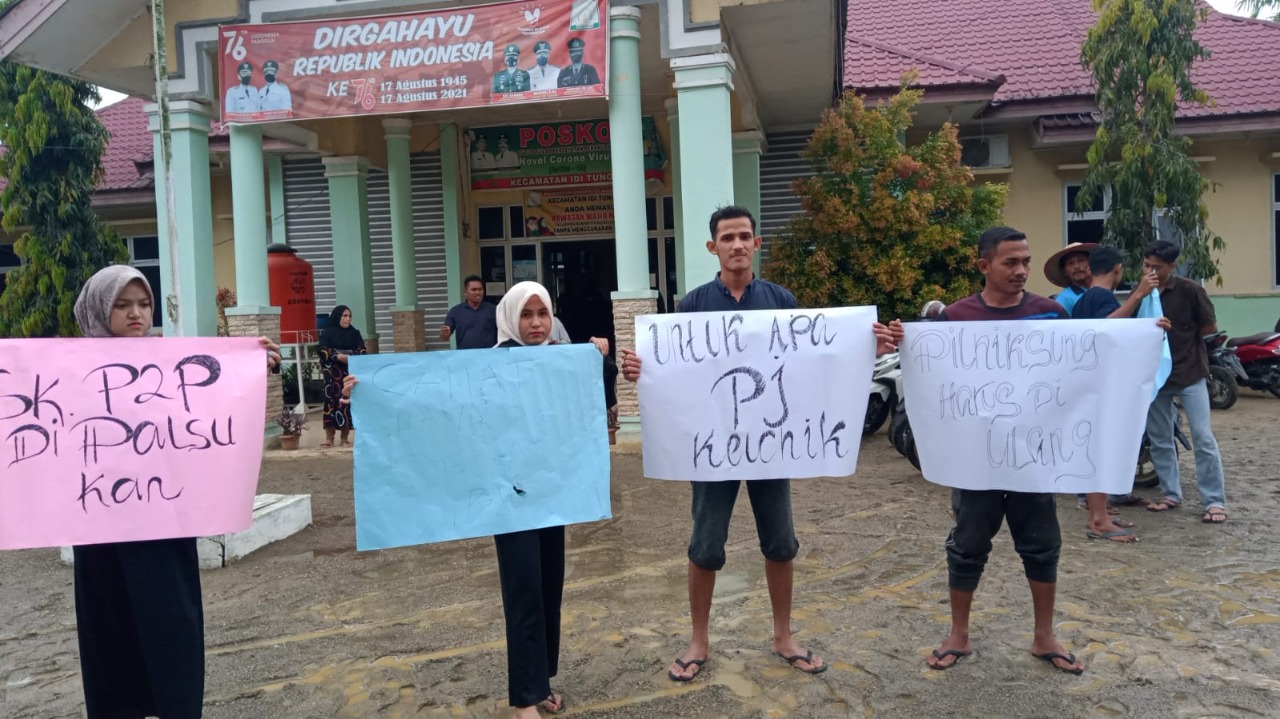 76 TH
INDONESIA
TANGGUH
DIRGAHAYU
REPUBLIK INDONESIA
KE 76 TH
17 Agustus 1945
17 Agustus 2021
POSKO
Novel Corona Viru
KECAMATAN IDI TUN
KECAMATAN IDI TUN
ANDA MEMAS
KAWASAN WAJIB
TANPA MENGGUNAKAN
SK. P2P
Di Palsu
kan
UNTUK APA
PJ
KeuChik
PilhiksUng
Harus Di
ULang